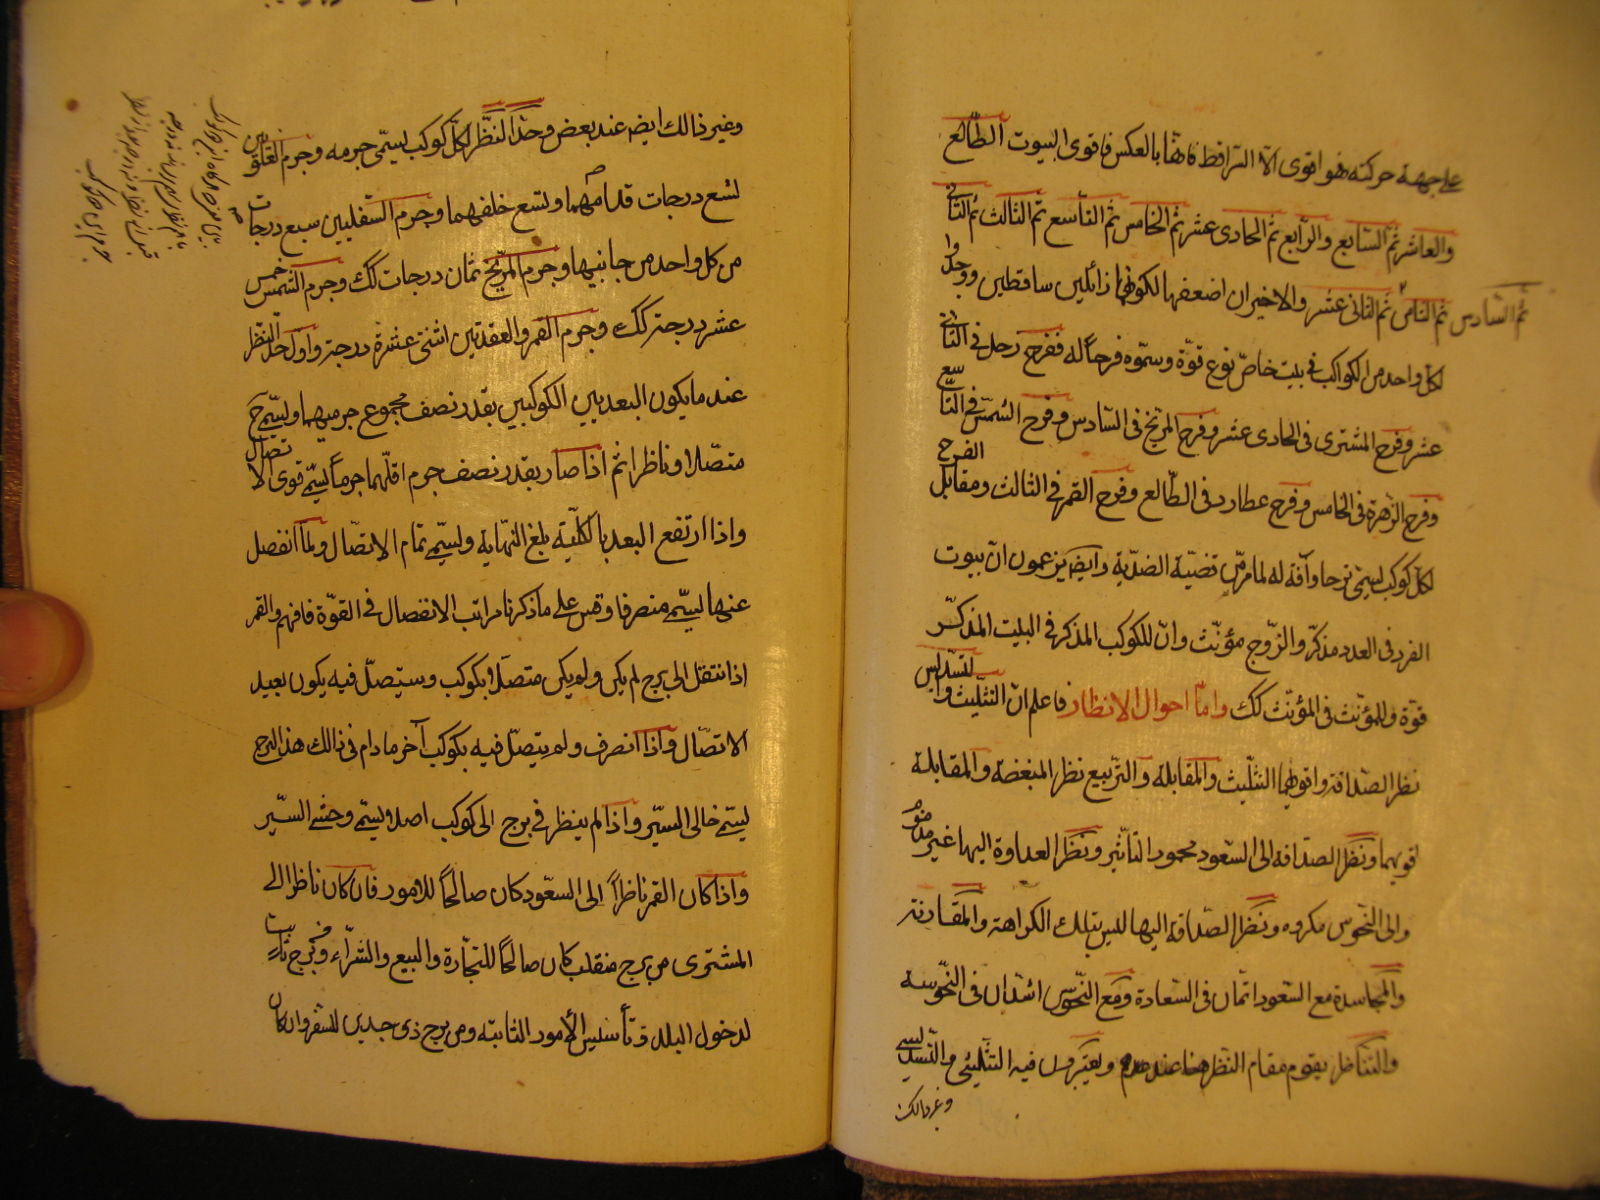 على جهة حركته هو اقوى الا التراقط فانها بالعكس فاقوى البيوت الطالع
والعاشر ثم السابع والرابع ثم الحادى عشر ثم الخامس ثم التاسع ثم الثالث ثم الثانى
ثم السادس ثم الثامن ثم الثانى عشر والاخيران اضعفها لكونهما زائلين ساقطين ووجدوا
لكل واحد من الكواكب فى بيت خاص نوع قوة وسموه فرحا له ففرح زحل فى الثانى
عشر وفرح المشترى فى الحادى عشر وفرح المريخ فى السادس وفرح الشمس فى التاسع
وفرح الزهرة فى الخامس وفرح عطارد فى الطالع وفرح القمر فى الثالث ومقابل الفرح
لكل كوكب يسمى ترحا وآفة له لما مر من قضية الضدية وايضه يزعمون ان بيوت
الفرد فى العدد مذكر والزوج مؤنث وان للكوكب المذكر فى البيت المذكر
قوة وللمؤنث فى المؤنث كك واما احوال الانظار فاعلم ان التثليث والتسديس
نظر الصداقة واقويهما التثليث والمقابلة والتربيع نظر المبغضة والمقابلة
اقويهما ونظر الصداقة الى السعود محمود التأثير ونظر العداوة اليها غير مذموم
والى النحوس مكروه ونظر الصداقة اليها ليس بتلك الكراهة والمقارنة
والمجاسدة مع السعود اتمان فى السعادة ومع النحوس اشدان فى النحوسة
والتناظر يقوم مقام النظر عندهم ويعتبرون فيه التثليثى والتسديسى
وغير ذالك
وغير ذالك ايضه عند بعض وحد النظر لكل كوكب يسمى جرمه وجرم العلويين
تسع درجات قدامهما وتسع خلفهما وجرم السفليين سبع درجات
من كل واحد من جانبيها وجرم المريخ ثمان درجات كك وجرم الشمس خمس
عشر درجة كك وجرم القمر والعقدتين اثنتى عشرة درجة واول حد النظر
عند ما يكون البعد بين الكوكبين بقدر نصف مجموع جرميهما ويسمى ح
متصلا وناظرا ثم اذا صار بقدر نصف جرم اقلهما جرما يسمى قوى الاتصال
واذا ارتفع البعد بالكلية بلغ النهاية ويسمى تمام الاتصال ولما انفصل
عنها يسمى منصرفا وقس على ما ذكرنا مراتب الانفصال فى القوة فافهم والقمر
اذا انتقل الى برج لم يكن ولم يكن متصلا بكوكب وسيتصل فيه يكون بعيد
الاتصال واذا انصرف ولم يتصل فيه بكوكب آخر ما دام فى ذالك هذ البرج
يسمى خالى السير واذا لم ينظر فى برج الى كوكب اصلا يسمى وحشى السير
واذا كان القمر ناظرا الى السعود كان صالحا للامور فان كان ناظرا الى
المشترى من برج منقلب كان صالحا للتجارة والبيع والشراء وفى برج ثابت
لدخول البلد وتأسيس الامور الثابته ومن برج ذى جدين للسفر وان كان